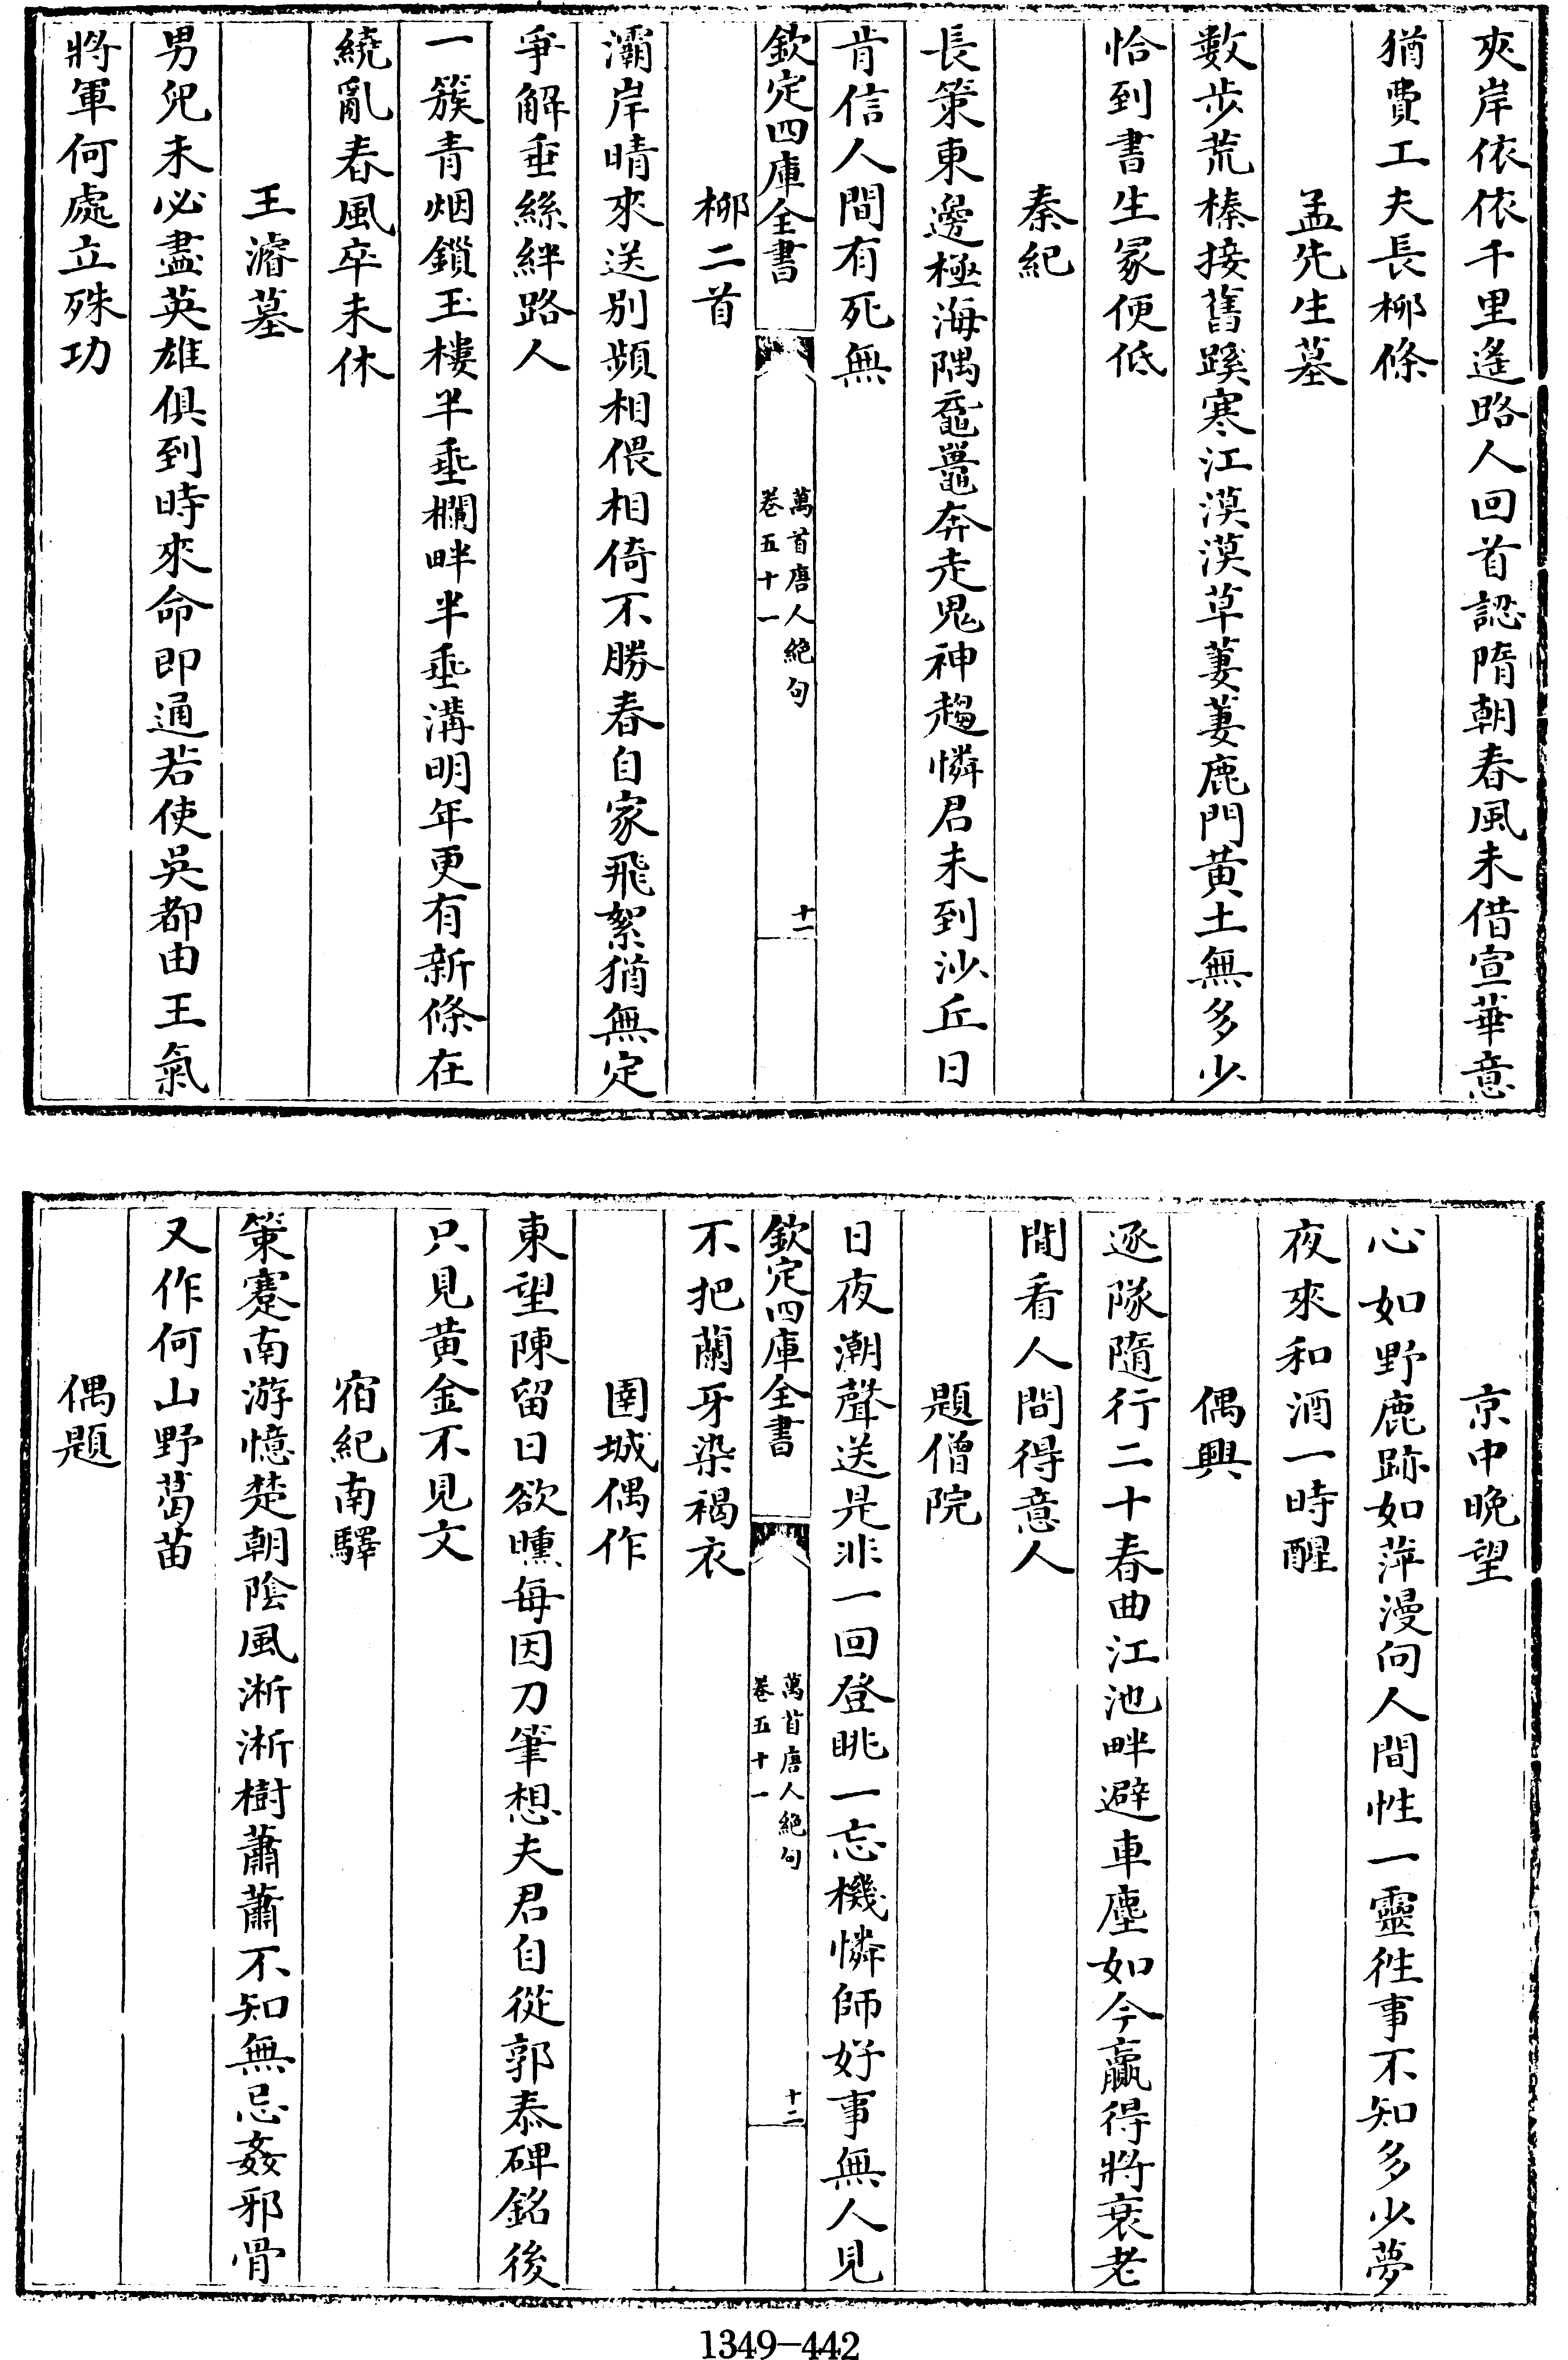 夾岸依依千里遙路人回首認隋朝春風未借宣華意
猶費工夫長柳條
孟先生墓
數步荒榛接舊蹊寒江漠漠草萋萋鹿門黄土無多少
恰到書生冢便低
秦紀
長策東邊極海隅黿鼉奔走鬼神趨憐君未到沙丘日
肯信人間有死無
欽定四庫全書
萬首唐人絶句
卷五十一
十一
柳二首
灞岸晴來送别頻相偎相倚不勝春自家飛絮猶無定
爭解垂絲絆路人
一簇青烟鎖玉樓半垂欄畔半垂溝明年更有新條在
繞亂春風卒未休
王濬墓
男兒未必盡英雄俱到時來命即通若使吳都由王氣
將軍何處立殊功
京中晚望
心如野鹿跡如萍漫向人間性一靈徃事不知多少夢
夜來和酒一時醒
偶興
逐隊隨行二十春曲江池畔避車塵如今贏得將衰老
閒看人間得意人
題僧院
日夜潮聲送是非一回登眺一忘機憐師好事無人見
不把蘭牙染褐衣
欽定四庫全書
萬首唐人絶句
卷五十一
十二
圉城偶作
東望陳留日欲曛每因刀筆想夫君自從郭泰碑銘後
只見黄金不見文
宿紀南驛
策蹇南游憶楚朝陰風淅淅樹蕭蕭不知無忌姦邪骨
又作何山野葛苗
偶題
1349-442